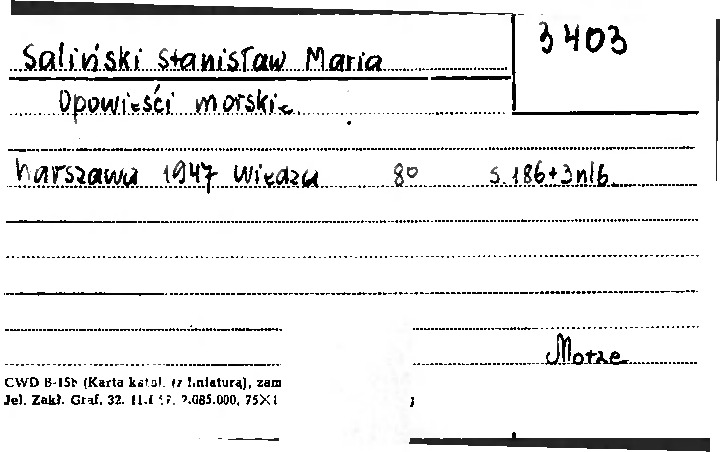 Saliński Stanisław Maria
3403
Opowieści morskie
Warszawa 1947 Wiedza 8° s. 186+3nlb.
Morze
CWD B-15b (Karta katal. (z liniaturą), zam
Jel. Zakł. Graf. 32. 2.085.000, 75X1